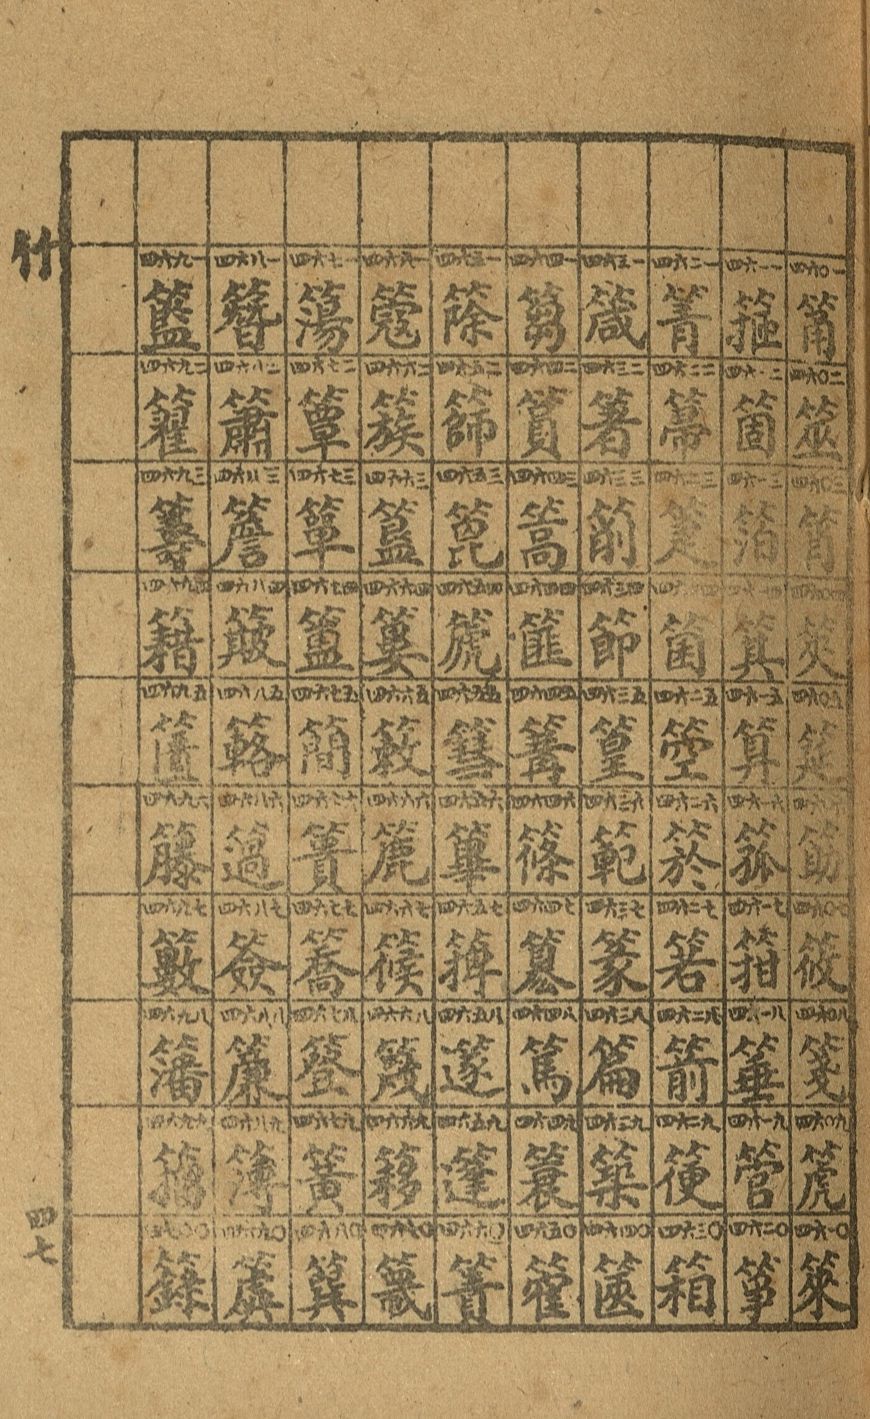 竹
四六〇一 筩 四六〇二 筮 四六〇三 筲 四六〇四 筴 四六〇五 筵 四六〇六 筯 四六〇七 筱 四六〇八 箋 四六〇九 箎 四六一〇 箂
四六一一 箍 四六一二 箇 四六一三 箔 四六一四 箕 四六一五 算 四六一六 箛 四六一七 箝 四六一八 箠 四六一九 管 四六二〇 箏
四六二一 箐 四六二二 箒 四六二三 箑 四六二四 箘 四六二五 箜 四六二六 箊 四六二七 箬 四六二八 箭 四六二九 箯 四六三〇 箱
四六三一 箴 四六三二 箸 四六三三 箾 四六三四 節 四六三五 篁 四六三六 範 四六三七 篆 四六三八 篇 四六三九 築 四六四〇 篋
四六四一 篘 四六四二 篔 四六四三 篙 四六四四 篚 四六四五 篝 四六四六 篠 四六四七 篡 四六四八 篤 四六四九 簑 四六五〇 篧
四六五一 篨 四六五二 篩 四六五三 篦 四六五四 篪 四六五五 篲 四六五六 篳 四六五七 篺 四六五八 篴 四六五九 篷 四六六〇
四六六一 簆 四六六二 簇 四六六三 簋 四六六四 簍 四六六五 簌 四六六六 簏 四六六七 篌 四六六八 篾 四六六九 簃 四六七〇 簚
四六七一 簜 四六七二 簟 四六七三 簞 四六七四 簠 四六七五 簡 四六七六 簣 四六七七 簥 四六七八 簦 四六七九 簧 四六八〇 簨
四六八一 簪 四六八二 簫 四六八三 簷 四六八四 簸 四六八五 簵 四六八六 簻 四六八七 簽 四六八八 簾 四六八九 簿 四六九〇 簴
四六九一 籃 四六九二 籊 四六九三 籌 四六九四 籍 四六九五 籄 四六九六 籐 四六九七 籔 四六九八 籓 四六九九 籀 四七〇〇 籙
四七